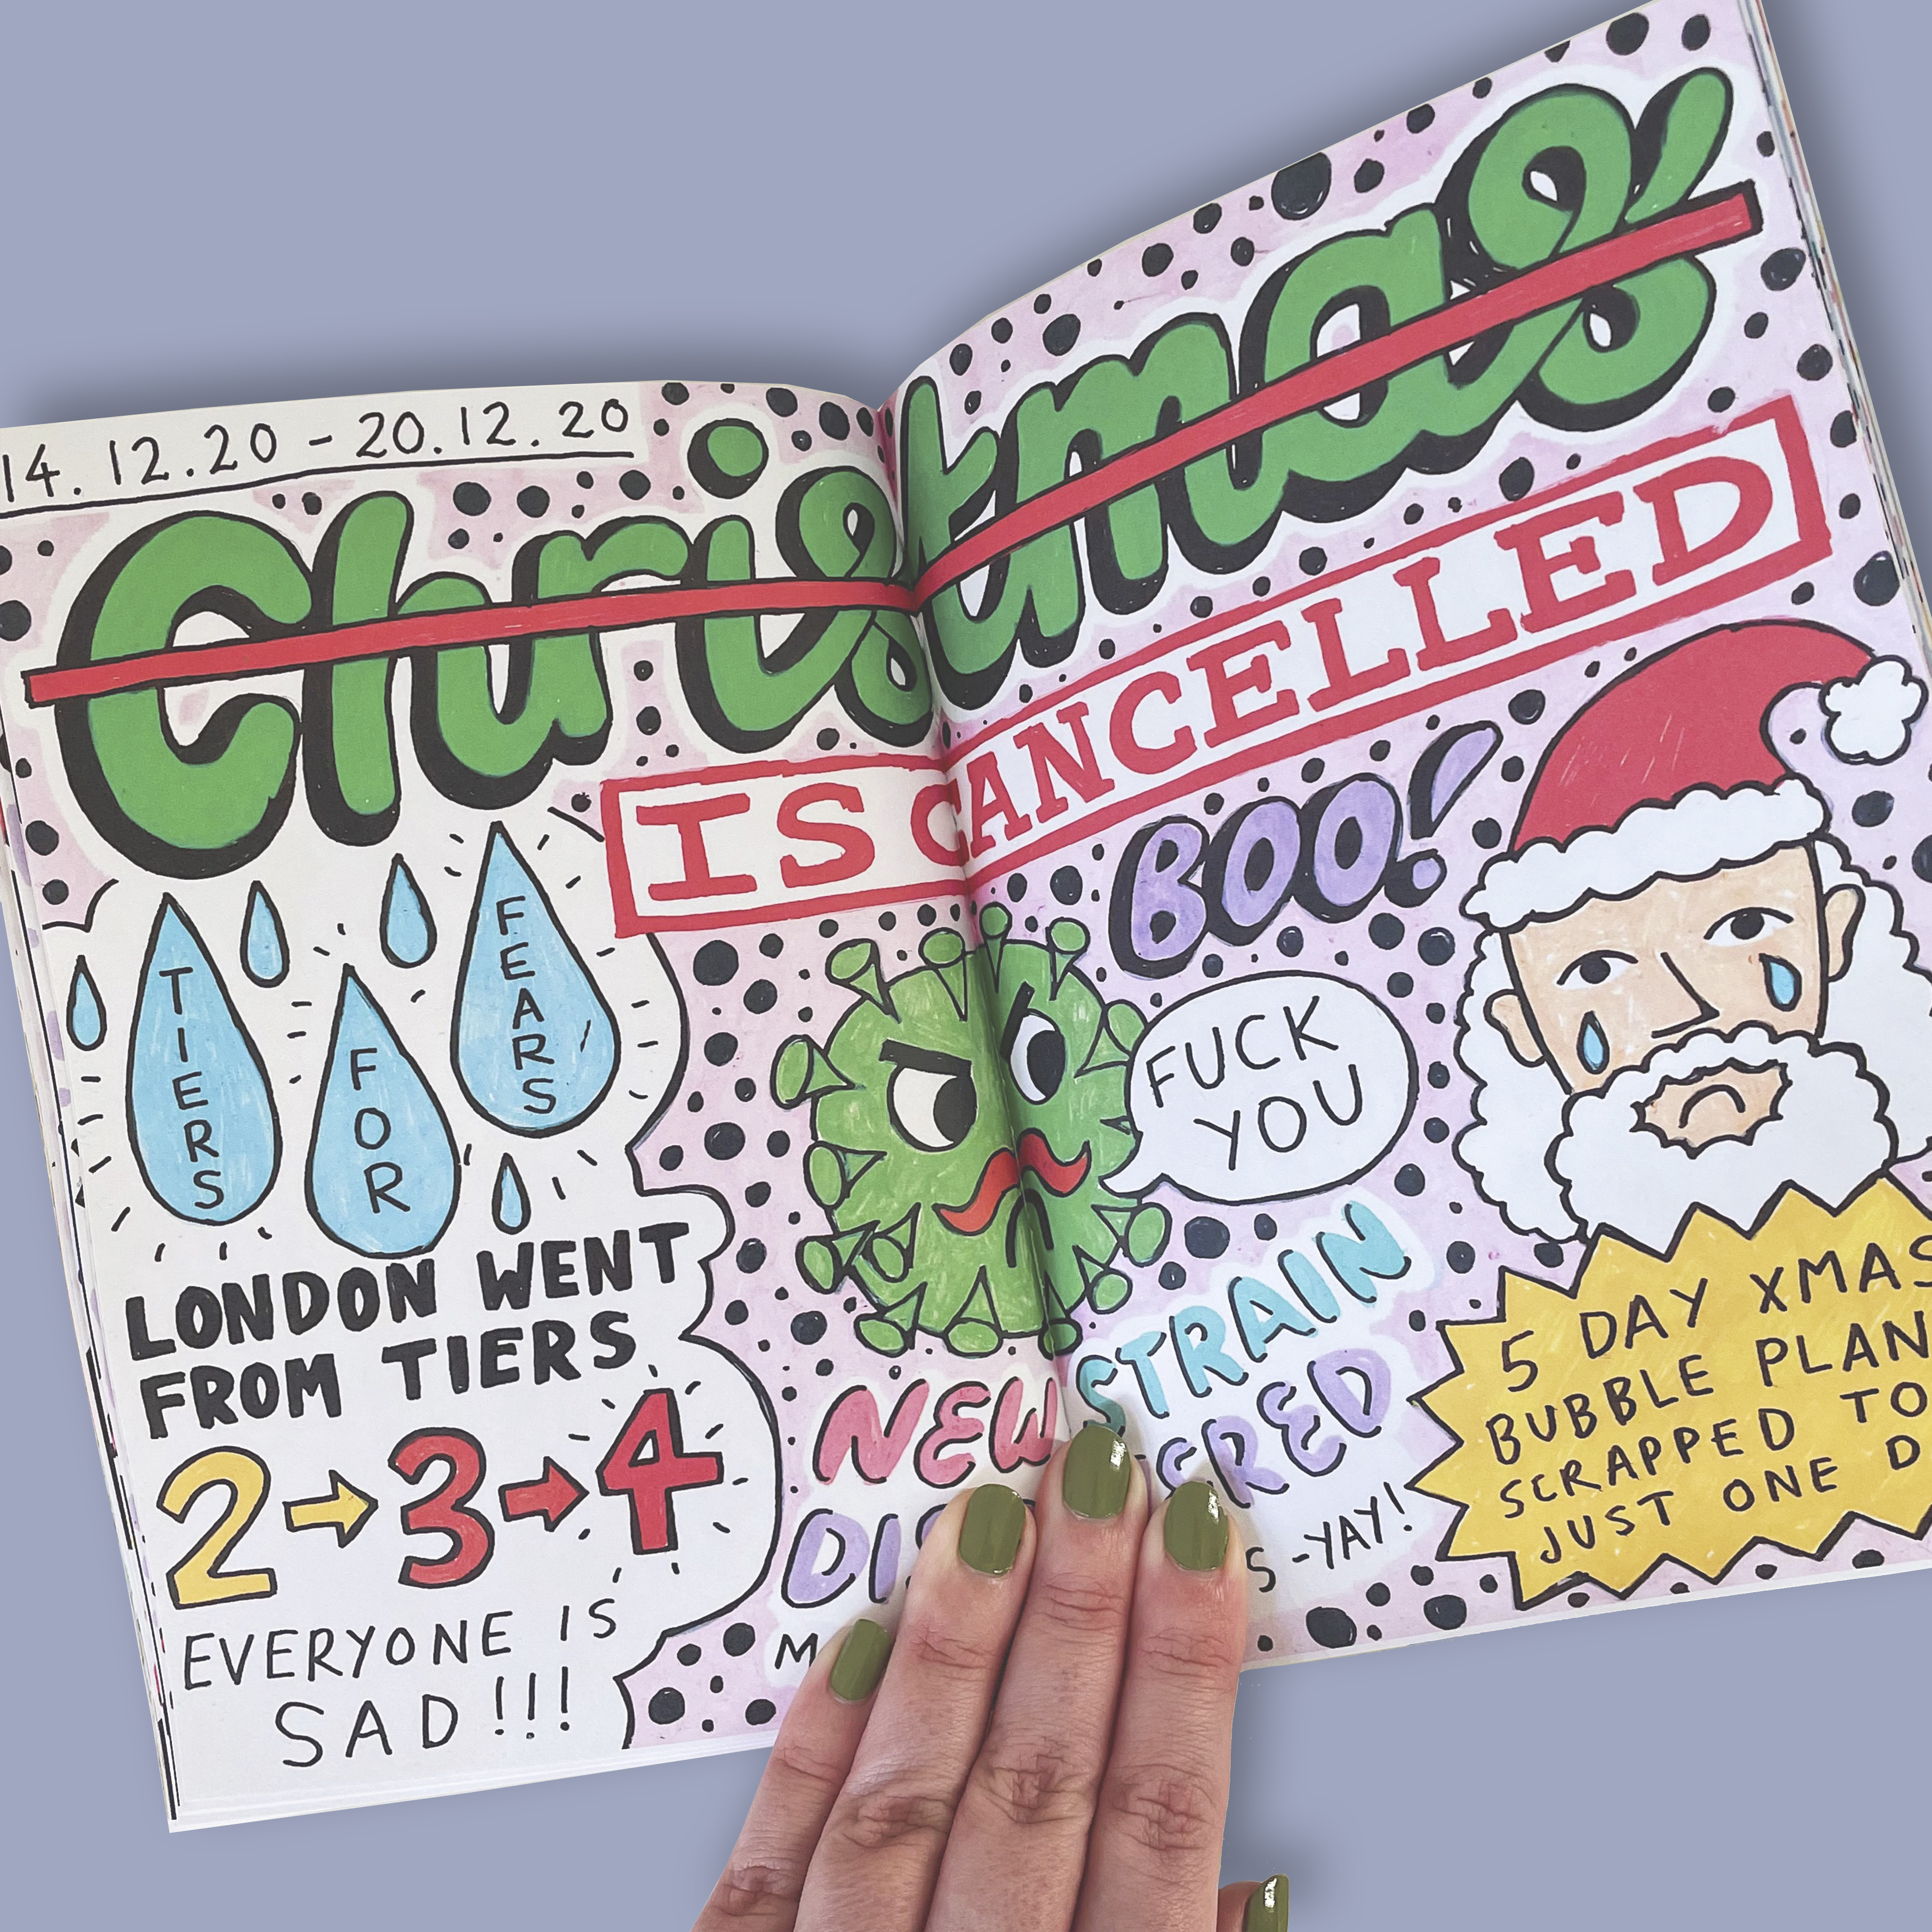 14.12.20 - 20.12.20
Christmas
IS CANCELLED
TIERS
FOR
FEARS
BOO!
FUCK
YOU
LONDON WENT
FROM TIERS
2→3→4
EVERYONE IS
SAD!!!
NEW STRAIN
-YAY!
5 DAY XMAS
BUBBLE PLAN
SCRAPPED TO
JUST ONE